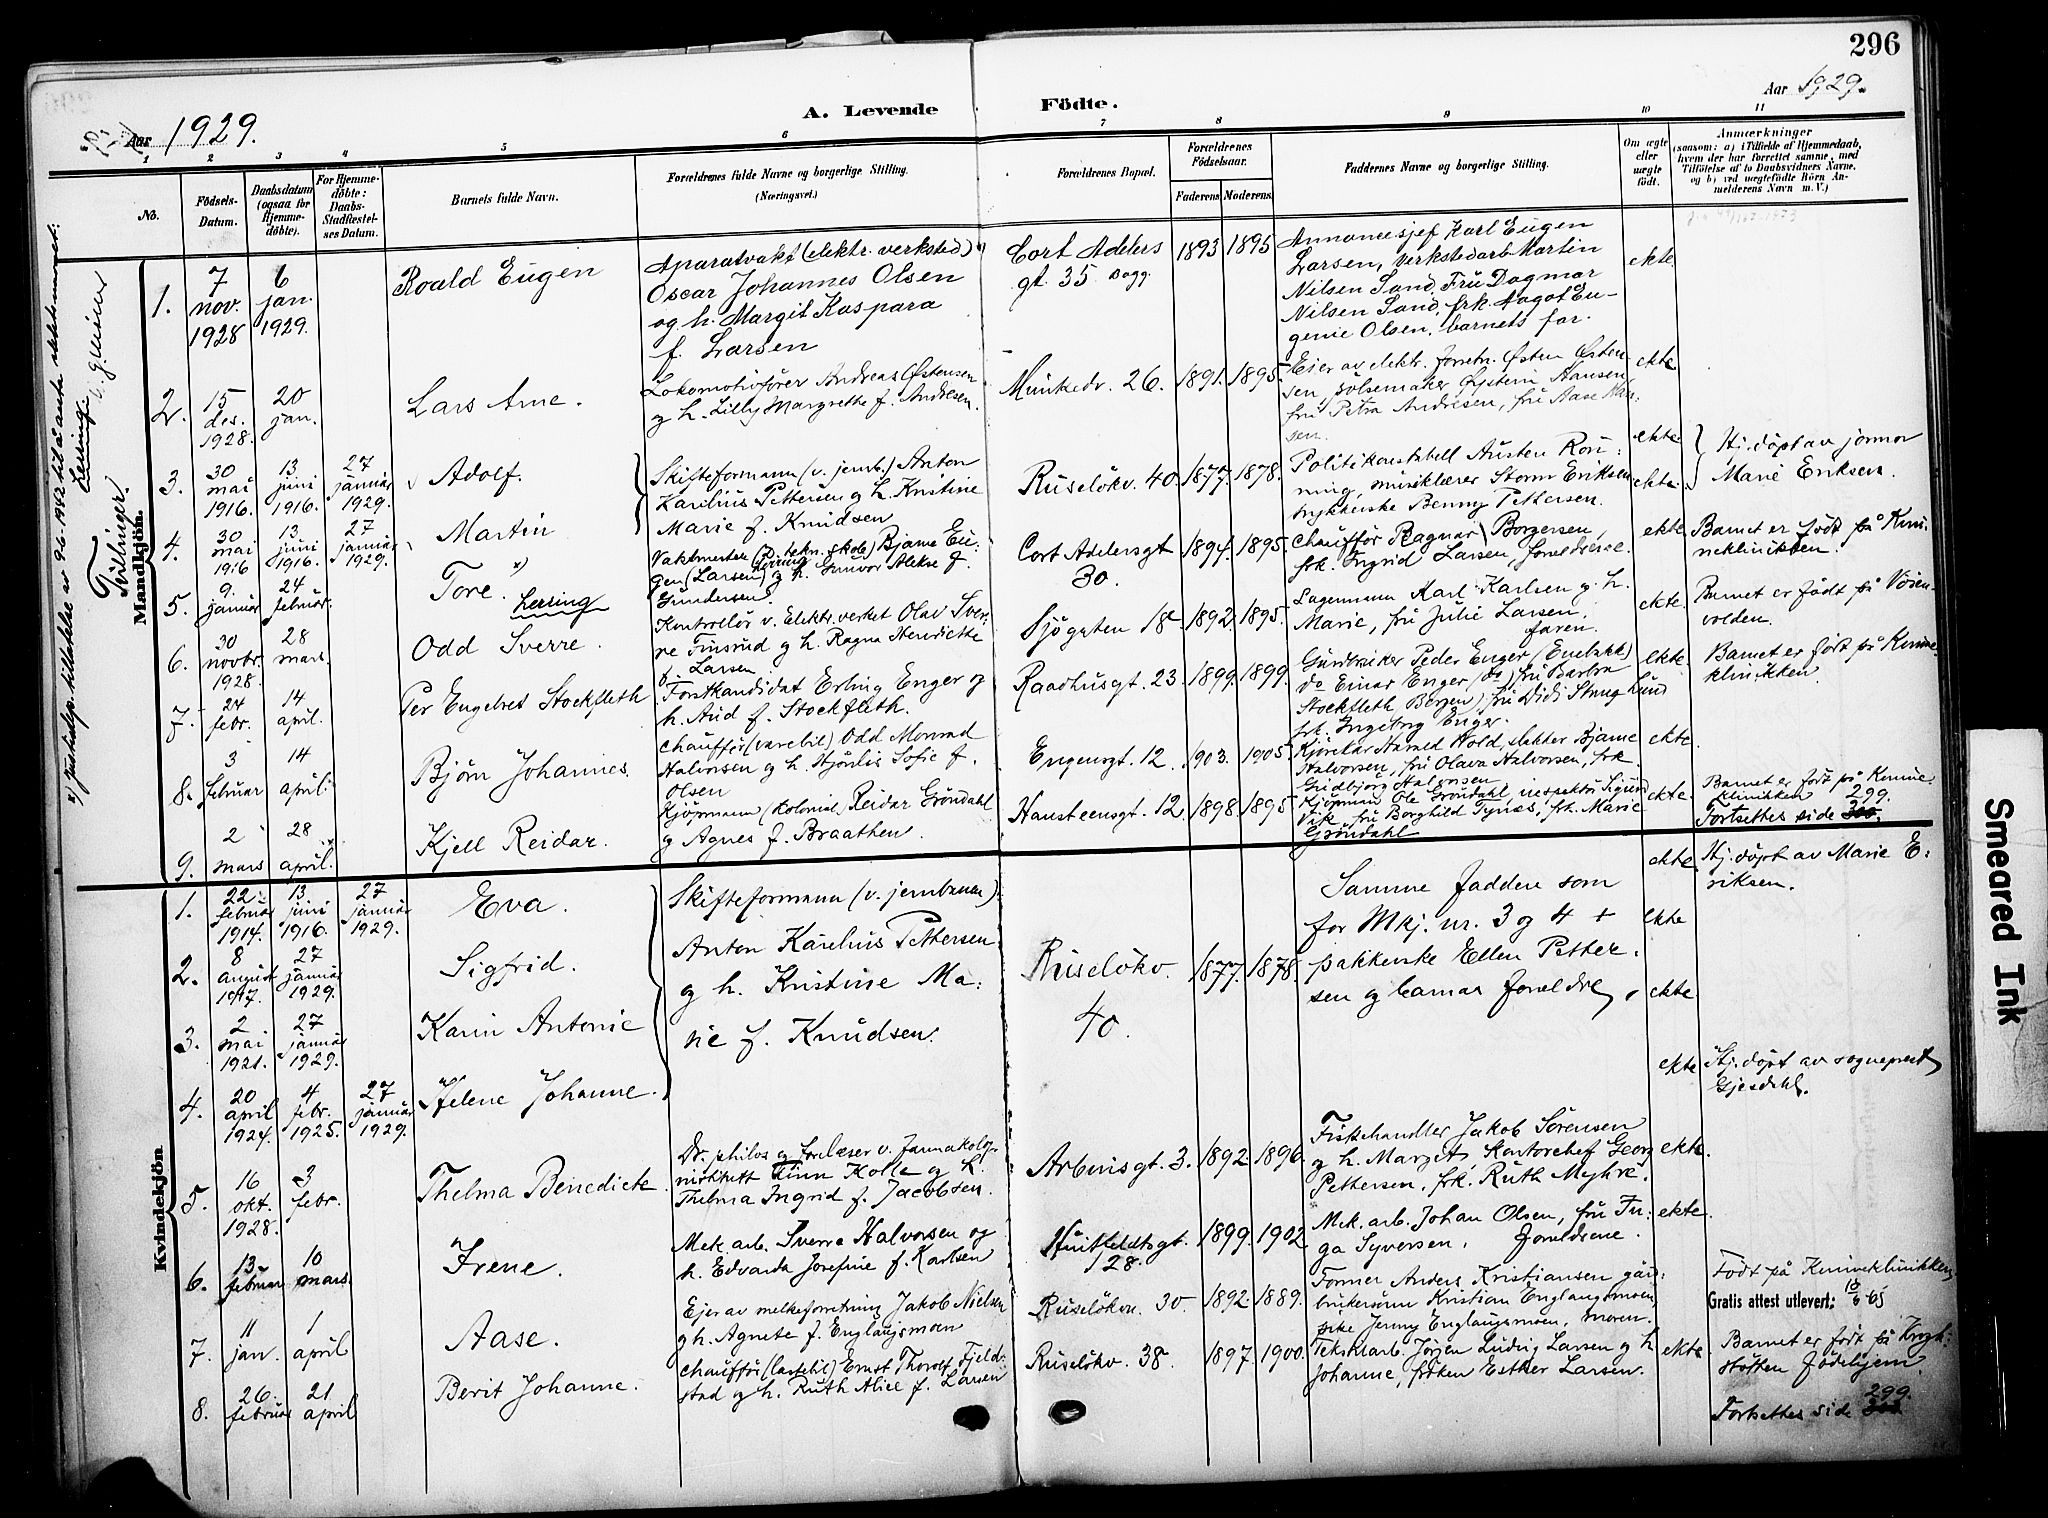 296
Aar 1929.
Aar 1929.
A. Levende Födte.
1 2 3 4 5 6 7 8 9 10 11
No.
Födsels-
Datum.
Daabsdatum
(ogsaa for
Hjemme-
döbte).
For Hjemme-
döbte:
Daabs-
Stadfæstel-
ses Datum.
Barnets fulde Navn.
Forældrenes fulde Navne og borgerlige Stilling.
(Næringsvei.)
Forældrenes Bopæl.
Forældrenes
Födselsaar.
Faderens Moderens
Faddernes Navne og borgerlige Stilling.
Om ægte
eller
uægte
födt.
Anmærkninger
(saasom: a) i Tilfælde af Hjemmedaab,
hvem der har forrettet samme, med
Tilföielse af to Daabsvidners Navne,
og b) ved uægtefödte Börn An-
melderens Navn m. V.)
Mandkjön.
Tvillinger.
x) Justisdep. tillatelse av 9-6-1942 til å anta slektsnavnet:
Lerring
1.
7
nov.
1928
6
jan.
1929.
Roald Eugen
Aparatvakt (elektr. verksted)
Oscar Johannes Olsen
og h. Margit Kaspara
f. Larsen
Cort Adelers
gt. 35 Bagg.
1893 1895
Annoncesjef Karl Eugen
Larsen, verkstedarb. Martin
Nilsen Sand, Fru Dagmar
Nilsen Sand, frk. Aagot Eu-
genie Olsen, barnets far.
ekte.
2.
15
des.
1928.
20
jan.
Lars Arne.
Lokomotivfører Andreas Østensen
og h. Lilly Margrethe f. Andresen.
Munkedv. 26.
1891. 1895.
Eier av elektr. forretn. Østen Østen-
sen, pølsemaker Øystein Hansen,
fru Petra Andresen, fru Aase Han-
sen.
ekte
3.
30
mai
1916.
13
juni
1916.
27
januar
1929.
Adolf.
Skifteformann (v. jernb.) Anton
Karelius Pettersen og h. Kristine
Marie f. Knudsen
Ruseløkv. 40.
1877. 1878.
Politikonstabel Austen Røn-
ning, musiklærer Storm Eriksen,
trykkerske Benny Pettersen.
ekte
Hj. døpt av jormor
Marie Eriksen.
4.
30
mai
1916
13
juni
1916.
27
januar
1929.
Martin
ekte.
5.
9.
januar
24
februar.
Tore. x)
Lerring
Vaktmester (v. tekn. skole) Bjarne Eu-
gen (Larsen) Lerring og h. Gunvor Alekse f.
Gundersen.
Cort Adelersgt
30.
1894. 1895.
Chauffør Ragnar Borgersen,
frk. Ingrid Larsen, foreldrene.
ekte
Barnet er født på Kvin-
neklinikken.
6.
30
novbr.
1928.
28
mars.
Odd Sverre.
Kontrollør v. Elektr. verket Olav Sver-
re Finsrud og h. Ragna Henriette
f. Larsen
Sjøgaten 18
1892. 1895.
Lagermann Karl Karlsen og h.
Marie, fru Julie Larsen,
faren.
ekte.
Barnet er født på Vøien-
volden.
7.
24
febr.
14
april.
Per Engebret Stockfleth
Forstkandidat Erling Enger og
h. Aud f. Stockfleth.
Raadhusgt. 23.
1899. 1899.
Gårdbruker Peder Enger (Enebakk)
do Einar Enger (do) fru Barbra
Stockfleth Bergen) fru Didi Stang Lund
frk. Ingeborg Enger.
ekte.
Barnet er født på Kvinne-
klinikken.
8.
3
februar
14
april.
Bjørn Johannes.
Chauffør (varebil) Odd Monrad
Halvorsen og h. Hjørdis Sofie f.
Olsen
Engensgt. 12.
1903. 1905
Kjørekar Harald Wold, slakter Bjarne
Halvorsen, fru Olava Halvorsen, frk
Gudbjørg Halvorsen
ekte.
9.
2
mars
28
april.
Kjell Reidar.
Kjøpmann (Kolonial) Reidar Grøndahl
og Agnes f. Braathen.
Hansteensgt. 12.
1898. 1895
Kjøpmann Ole Grøndahl, inspektør Sigurd
Vik, fru Borghild Tynæs, frk. Marie
Grøndahl
ekte.
Barnet er født på Kvinne-
klinikken
299.
Fortsettes side 300.
Kvindekjön
1.
22
februar
1914.
13
juni
1916.
27
januar
1929.
Eva.
Skifteformann (v. jernbanen)
Anton Karelius Pettersen
og h. Kristine Ma-
rie f. Knudsen.
Ruseløkv.
40.
1877. 1878.
Samme faddere som
for Mkj. nr. 3 og 4 +
pakkerske Ellen Petter-
sen og barnas foreldre.
ekte
Hj. døpt av Marie E-
riksen.
2.
8
august
1917.
27
januar
1929.
Sigfrid.
ekte
3.
2
mai
1921.
27
januar
1929.
Karin Antonie
ekte
4.
20
april
1924.
4
febr.
1925.
27
januar
1929.
Helene Johanne.
ekte
Hj. døpt av sogneprest
Gjesdahl.
5.
16
okt.
1928.
3
febr.
Thelma Benedicte.
Dr. philos og foreleser v. farmakolog.
institutt Finn Kolle og h.
Thelma Ingrid f. Jacobsen.
Arbiensgt. 3.
1892. 1896.
Fiskehandler Jakob Sørensen
og h. Margit, Kontorchef Georg
Pettersen, frk. Ruth Myhre.
ekte.
6.
13
februar
10
mars.
Irene.
Mek. arb. Sverre Halvorsen og
h. Edvarda Josefine f. Karlsen
Huitfeldtsgt.
128.
1899. 1902
Mek. arb. Johan Olsen, fru In-
ga Syversen, foreldrene.
ekte
7.
11
jan.
1
april
Aase.
Eier av melkeforretning Jakob Nielsen
og h. Agnete f. Englaugsmoen
Ruseløkvn. 30.
1892. 1889.
Former Anders Kristiansen gård-
brukersønn Kristian Englaugsmoen,
pike Jenny Englaugsmoen, moren.
Født på Kvinneklinikken.
Gratis attest utlevert: 18/6-65
8.
26.
februar
21
april
Berit Johanne.
Chauffør (lastebil) Ernst Thorolf Fjeld-
stad og h. Ruth Alice f. Larsen
Ruseløkv. 38.
1897. 1900.
Tekstilarb. Jørgen Ludvig Larsen og h
Johanne, frøken Esther Larsen.
ekte.
Barnet er født på Krogh-
støtten fødehjem.
299.
Fortsettes side
Smeared Ink